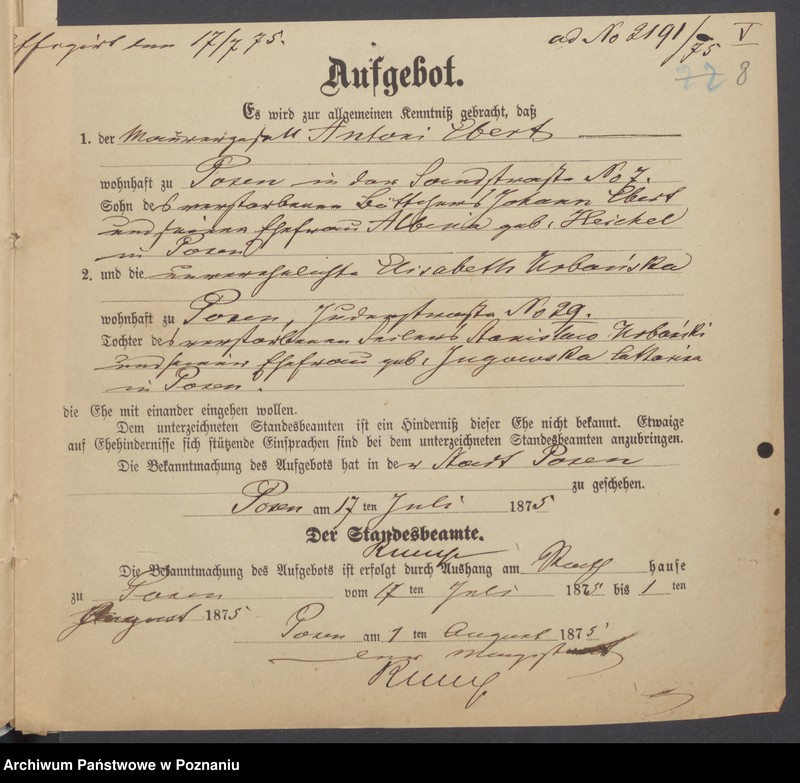 Affigirt den 17/7 75.
ad No 2191/75 V
22 8
Aufgebot.
Es wird zur allgemeinen Kenntniß gebracht, daß
1. der Maurergesell Antoni Ebert
wohnhaft zu Posen in der Sandstraße No 7.
Sohn des verstorbenen Böttchers Johann Ebert
und seiner Ehefrau Albina geb. Heichel
in Posen
2. und die unverehelichte Elisabeth Urbańska
wohnhaft zu Posen, Judenstraße No 29.
Tochter des verstorbenen Seilers Stanislaw Urbański
und seiner Ehefrau geb. Jugowska
in Posen.
die Ehe mit einander eingehen wollen.
Dem unterzeichneten Standesbeamten ist ein Hinderniß dieser Ehe nicht bekannt. Etwaige
auf Ehehindernisse sich stützende Einsprachen sind bei dem unterzeichneten Standesbeamten anzubringen.
Die Bekanntmachung des Aufgebots hat in der Stadt Posen
zu geschehen.
Posen am 17 ten Juli 1875
Der Standesbeamte.
Die Bekanntmachung des Aufgebots ist erfolgt durch Aushang am Rath hause
zu Posen vom 17 ten Juli 1875 bis 1 ten
August 1875
Posen am 1 ten August 1875
Der Magistrat
Archiwum Państwowe w Poznaniu